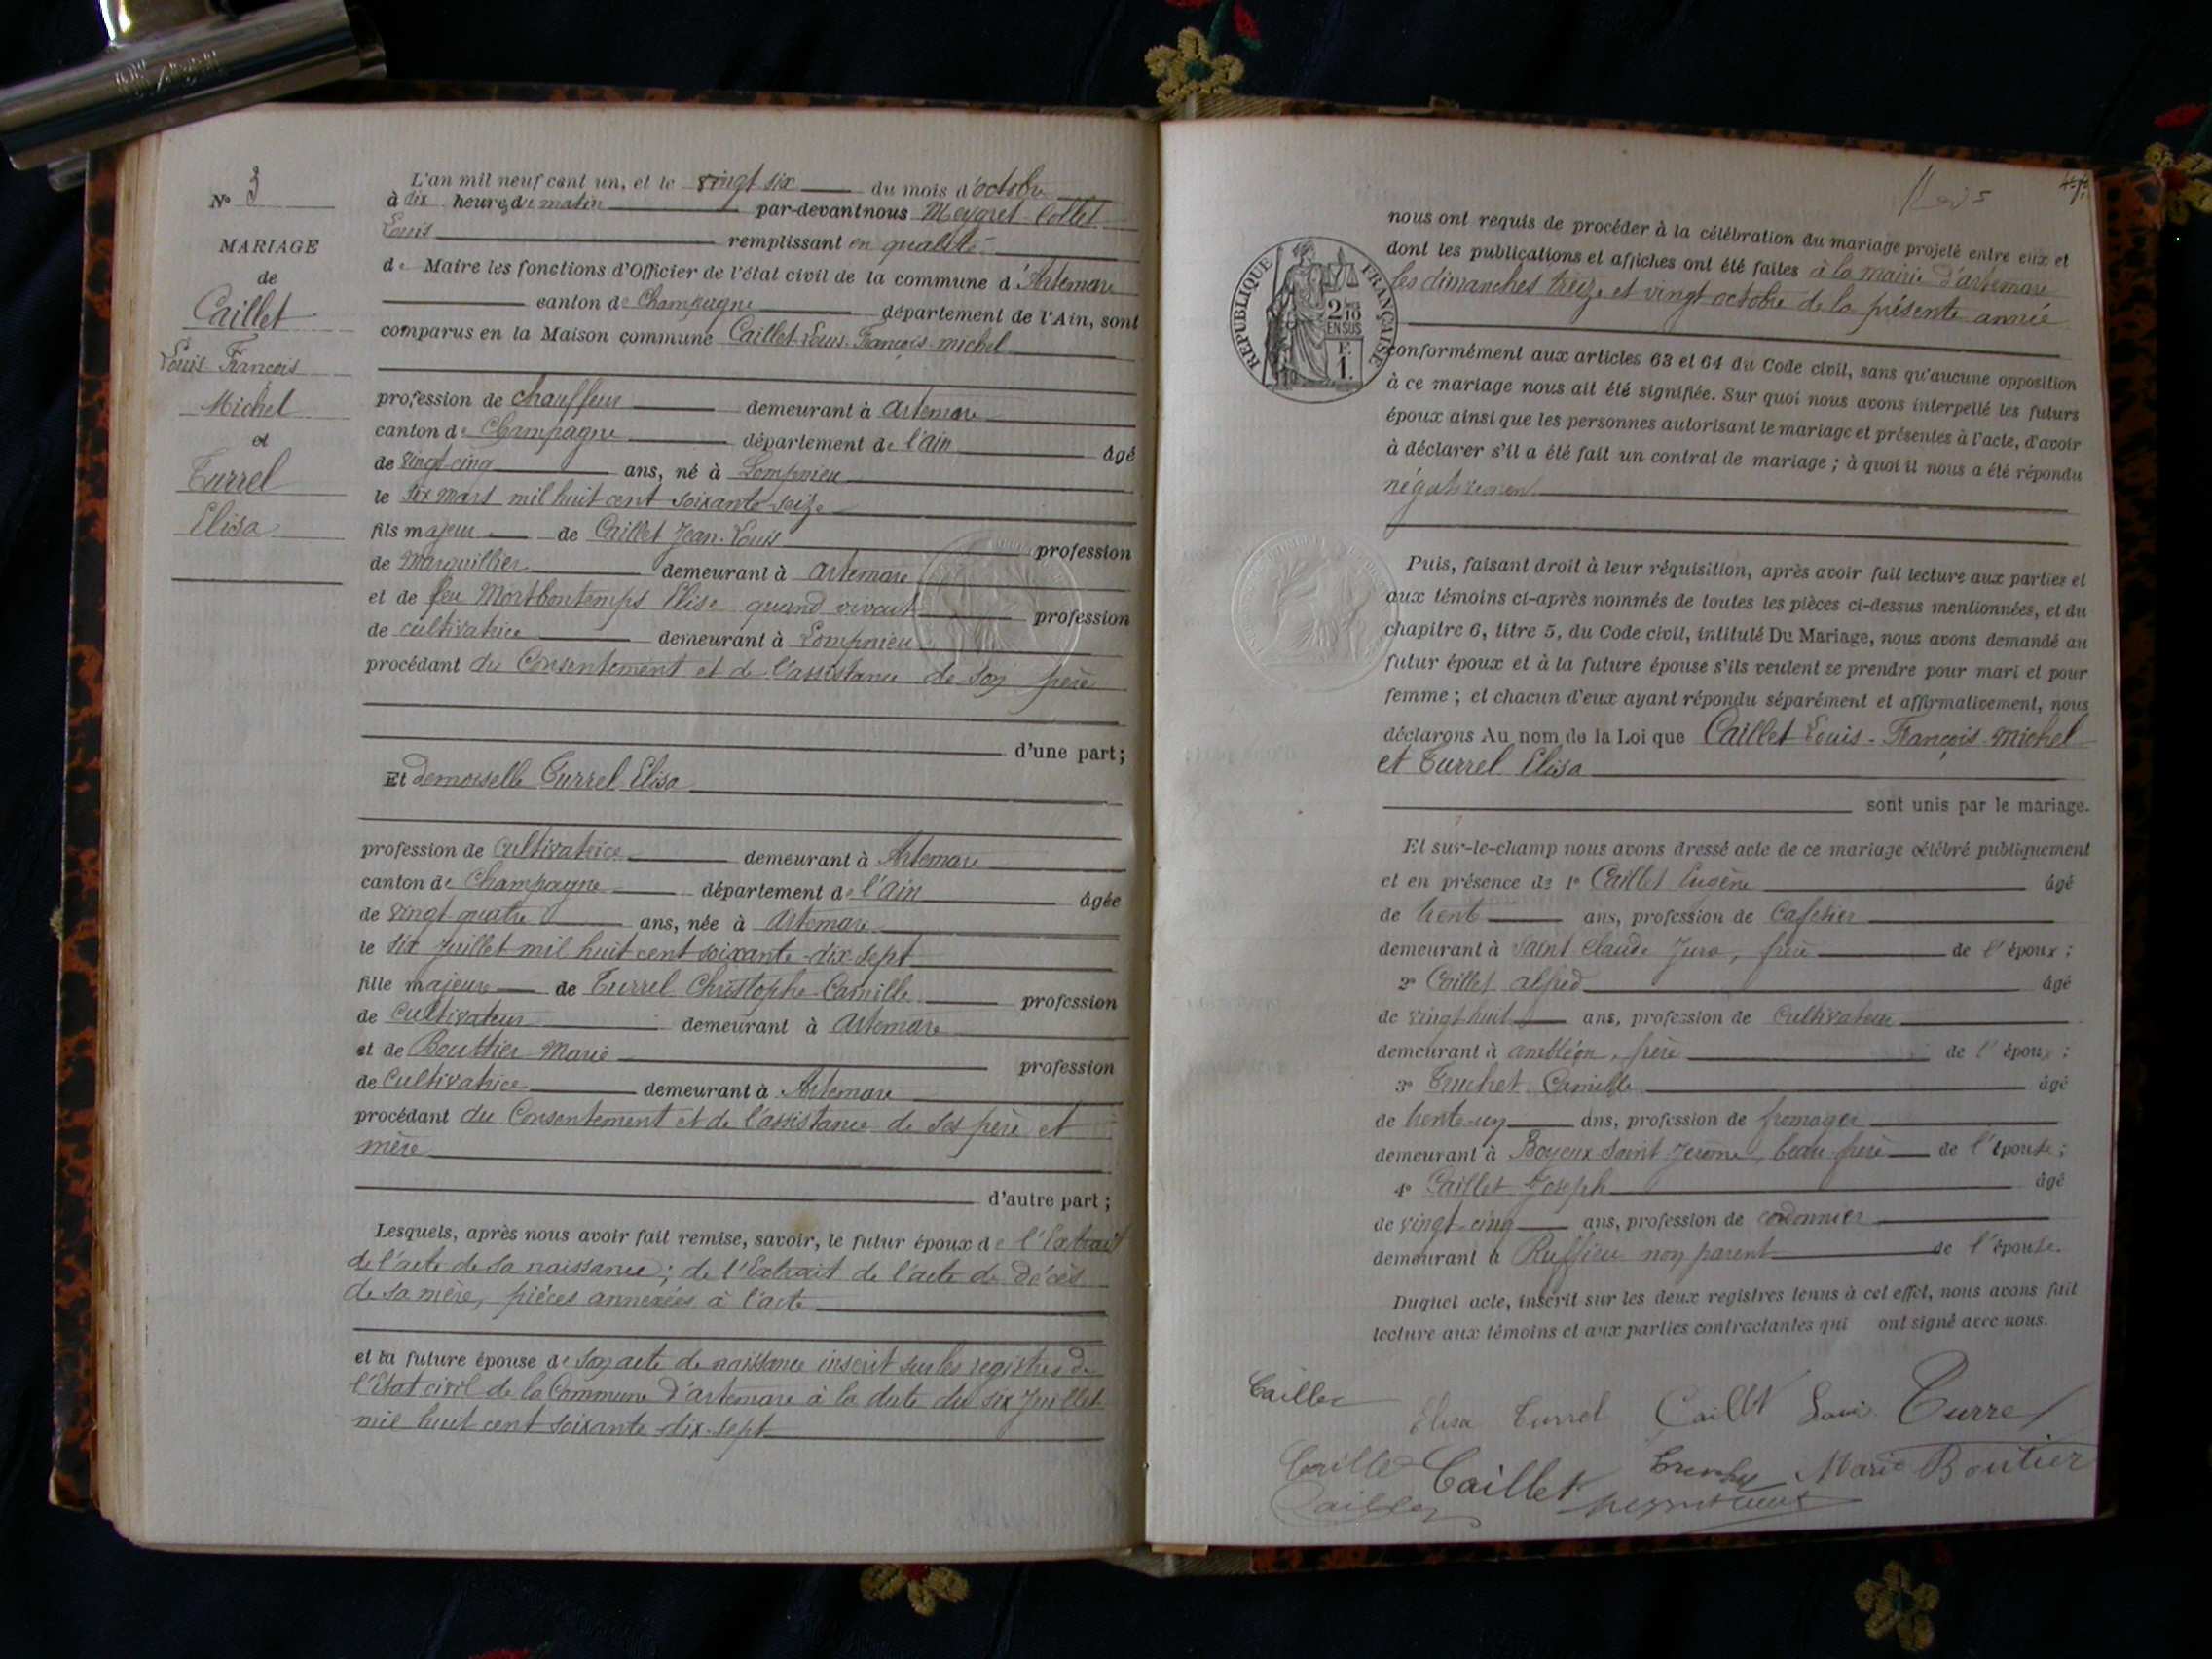 N° 3
MARIAGE
de
Caillet
Louis François
Michel
et
Turrel
Elisa
L'an mil neuf cent un, et le vingt six du mois d'octobre
à dix heures du matin par-devant nous Meygret-Collet
Louis remplissant en qualité
de Maire les fonctions d'Officier de l'état civil de la commune d'Artemare
canton de Champagne département de l'Ain, sont
comparus en la Maison commune Caillet Louis-François-Michel
profession de chauffeur demeurant à Artemare
canton de Champagne département de l'ain âgé
de vingt-cinq ans, né à Lompnieu
le six mars mil huit cent soixante-seize
fils majeur de Caillet Jean-Louis profession
de Marguillier demeurant à Artemare
et de feu Montbontemps Elise quand vivait profession
de cultivatrice demeurant à Lompnieu
procédant du Consentement et de l'assistance de son père
d'une part;
Et demoiselle Turrel Elisa
profession de cultivatrice demeurant à Artemare
canton de Champagne département de l'ain âgée
de vingt quatre ans, née à Artemare
le six juillet mil huit cent soixante-dix-sept
fille majeure de Turrel Christophe-Camille profession
de Cultivateur demeurant à Artemare
et de Bouttier Marie profession
de Cultivatrice demeurant à Artemare
procédant du Consentement et de l'assistance de ses père et
mère
d'autre part;
Lesquels, après nous avoir fait remise, savoir, le futur époux de l'Extrait
de l'acte de sa naissance; de l'Extrait de l'acte de décès
de sa mère, pièces annexées à l'acte
et la future épouse de son acte de naissance inscrit sur les registres de
l'Etat civil de la Commune d'artemare à la date du six Juillet
mil huit cent soixante-dix-sept
nous ont requis de procéder à la célébration du mariage projeté entre eux et
dont les publications et affiches ont été faites à la mairie d'artemare
les dimanches treize et vingt octobre de la présente année
RÉPUBLIQUE FRANÇAISE
2/10
EN SUS
F.
1.
conformément aux articles 63 et 64 du Code civil, sans qu'aucune opposition
à ce mariage nous ait été signifiée. Sur quoi nous avons interpellé les futurs
époux ainsi que les personnes autorisant le mariage et présentes à l'acte, d'avoir
à déclarer s'il a été fait un contrat de mariage; à quoi il nous a été répondu
négativement
Puis, faisant droit à leur réquisition, après avoir fait lecture aux parties et
aux témoins ci-après nommés de toutes les pièces ci-dessus mentionnées, et du
chapitre 6, titre 5, du Code civil, intitulé Du Mariage, nous avons demandé au
futur époux et à la future épouse s'ils veulent se prendre pour mari et pour
femme; et chacun d'eux ayant répondu séparément et affirmativement, nous
déclarons Au nom de la Loi que Caillet Louis-François-Michel
et Turrel Elisa
sont unis par le mariage.
Et sur-le-champ nous avons dressé acte de ce mariage célébré publiquement
et en présence de 1° Caillet Eugène âgé
de trent ans, profession de Cafetier
demeurant à Saint Claude Jura, frère de l'époux;
2° Caillet alfred âgé
de vingt huit ans, profession de Cultivateur
demeurant à ambléon, frère de l'époux;
3° Truchet Camille âgé
de trente-un ans, profession de fromager
demeurant à Boyeux Saint-Jérome, beau frère de l'épouse;
4° Caillet Joseph âgé
de vingt-cinq ans, profession de cordonnier
demeurant à Ruffieu non parent de l'épouse.
Duquel acte, inscrit sur les deux registres tenus à cet effet, nous avons fait
lecture aux témoins et aux parties contractantes qui ont signé avec nous.
Caillet
Elisa Turrel Caillet Louis Turrel
Caillet Caillet Truchet Marie Boutier
Caillet